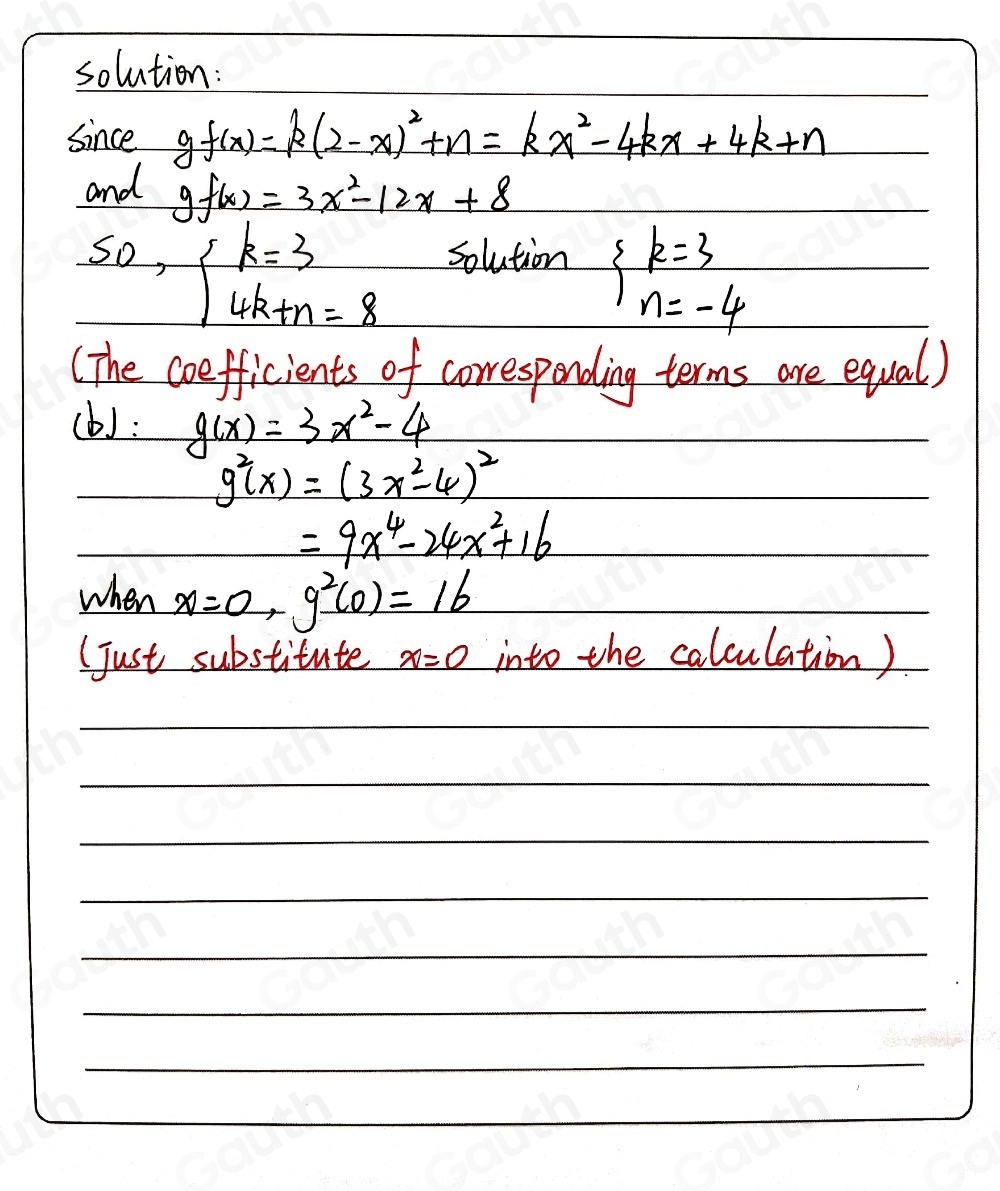 solution:
since gf(x)=k(2-x)²+n=kx²-4kx+4k+n
and gf(x)=3x²-12x+8
so, { k=3 solution { k=3
4k+n=8 n=-4
(The coefficients of corresponding terms are equal)
(b): g(x)=3x²-4
g²(x)=(3x²-4)²
=9x⁴-24x²+16
when x=0, g²(0)=16
(Just substitute x=0 into the calculation).